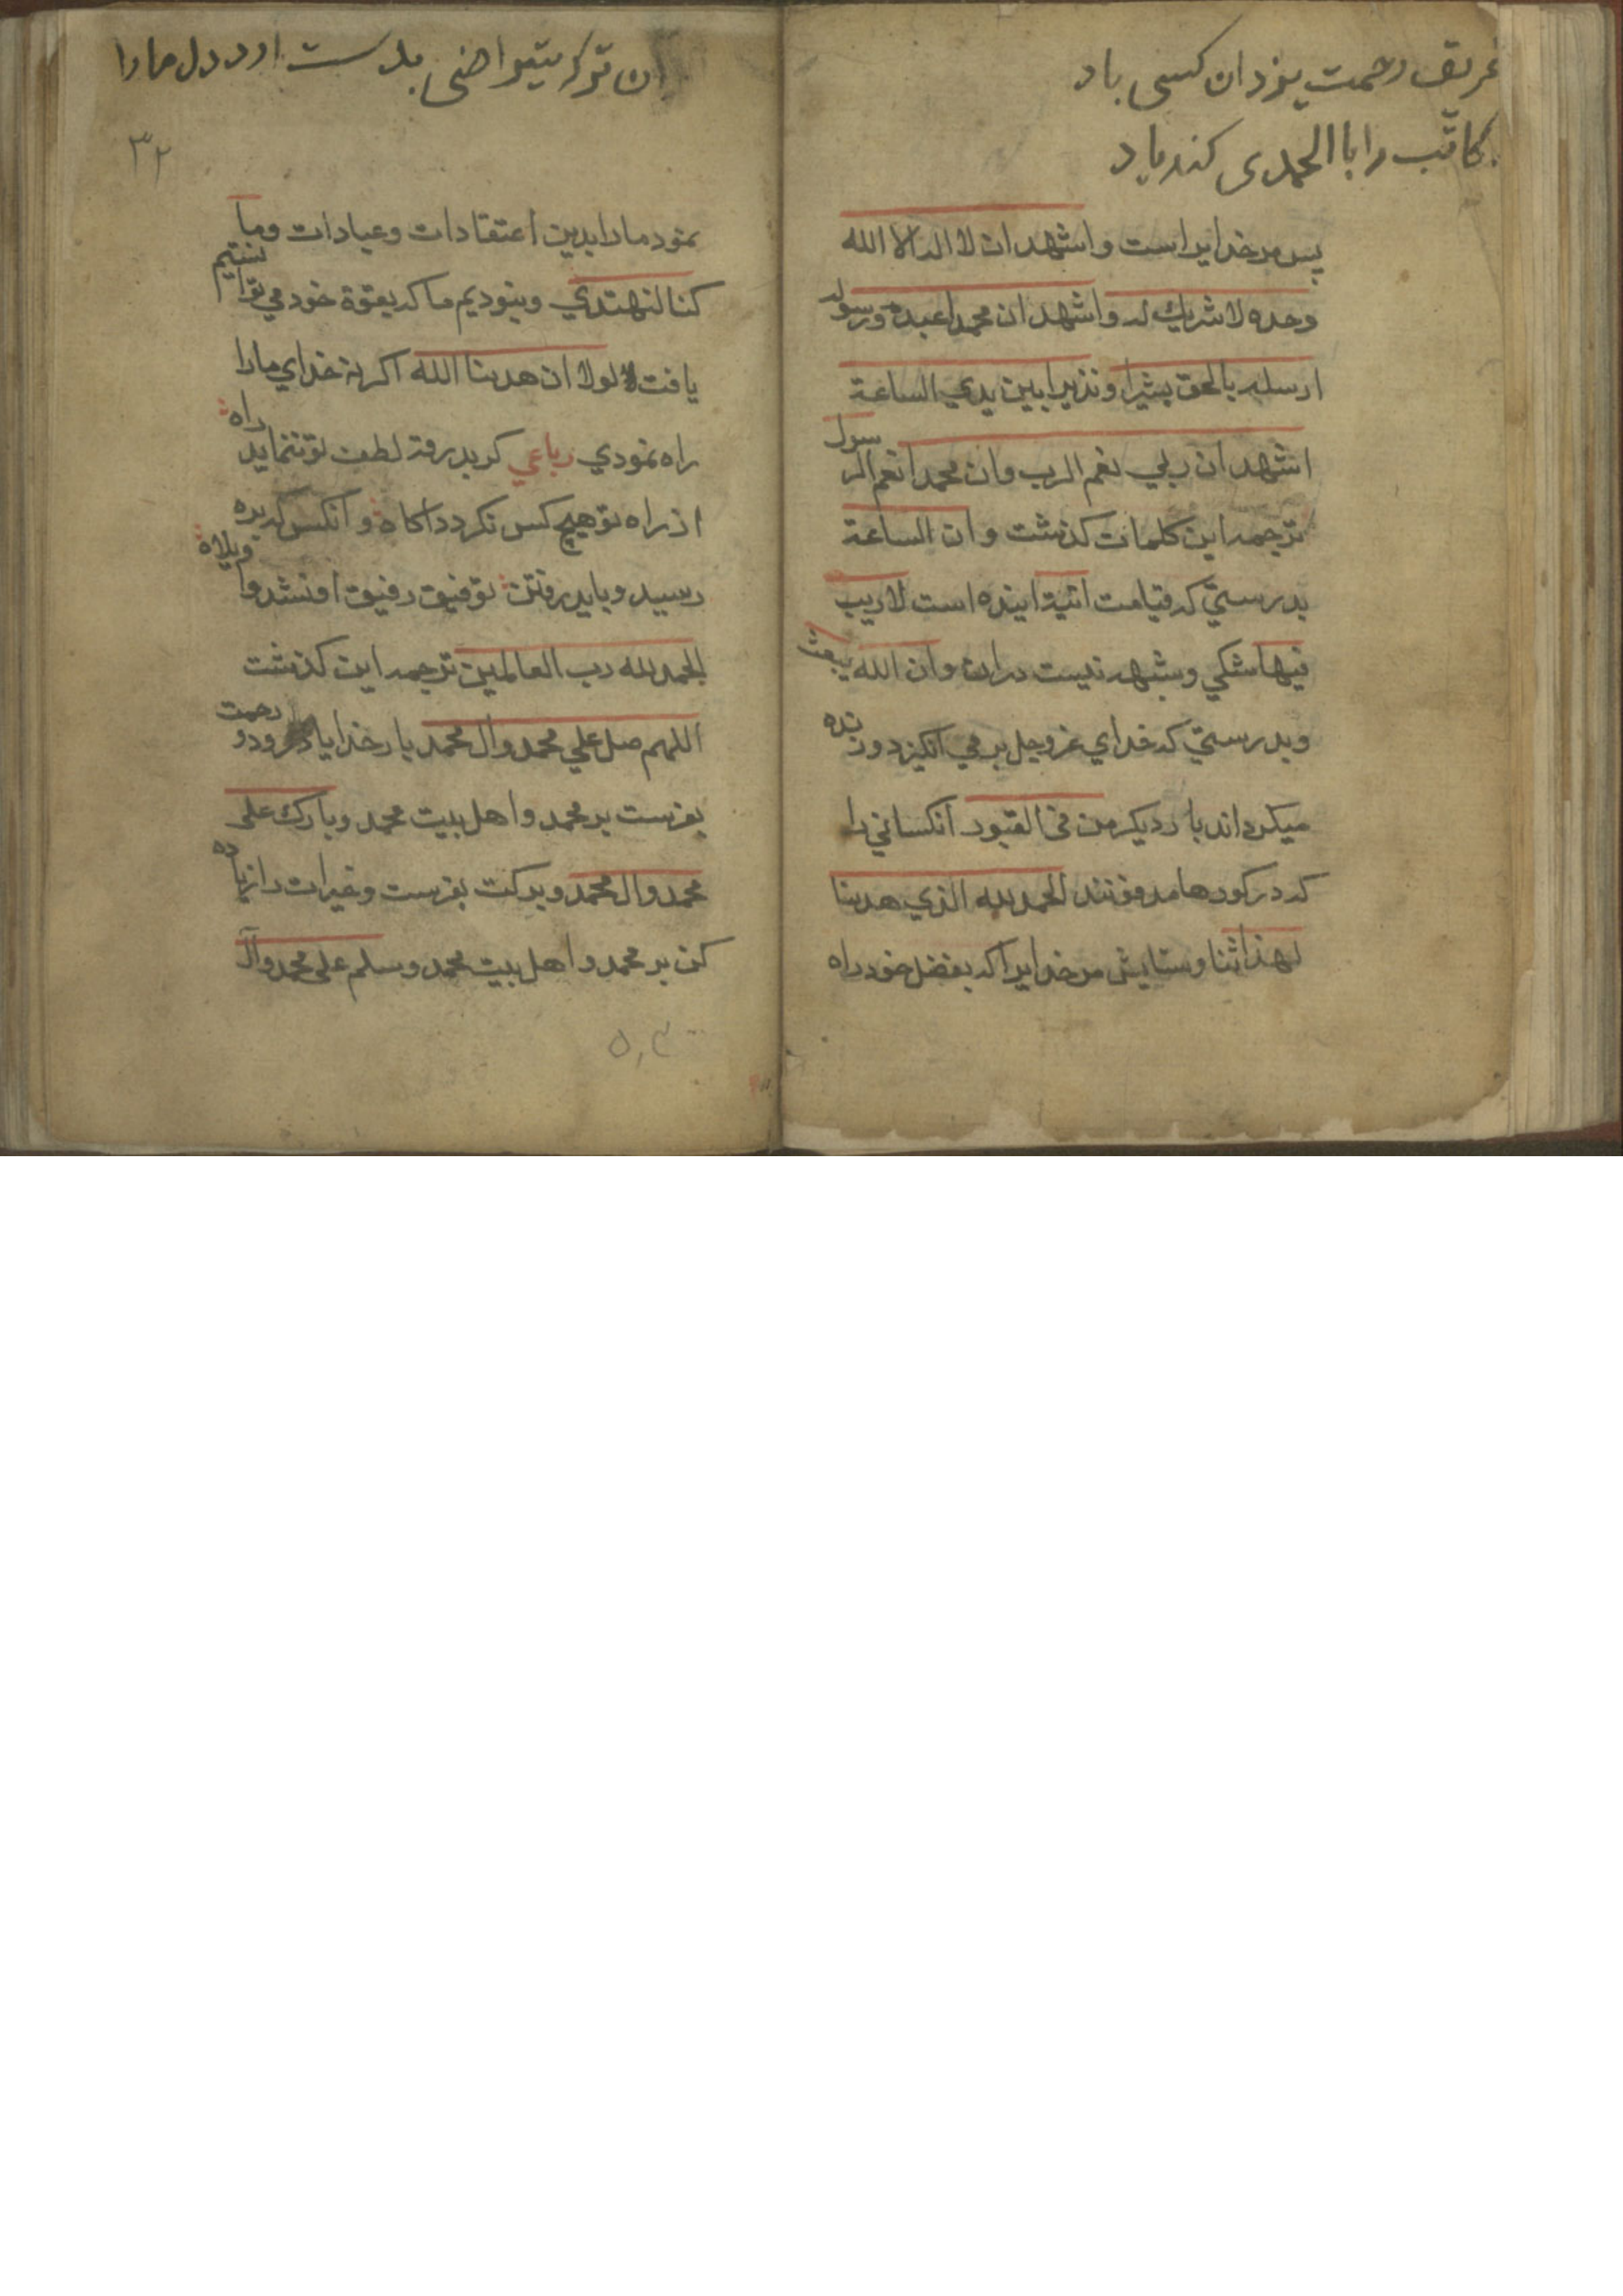 غریق رحمت یزدان کسی باد
کاتب را با الحمدی کند یاد
پس مر خدایراست و اشهد ان لا اله الا الله
وحده لا شریك له و اشهد ان محمدا عبده ورسوله
ارسله بالحق بشیرا ونذیرا بین یدی الساعة
اشهد ان ربی نعم الرب وان محمدا نعم الرسول
ترجمه این کلمات کذشت و ان الساعة
بدرستی که قیامت اتیة اینده است لا ریب
فیها شکی وشبهه نیست دران وان الله یبعث
وبدرستی که خدای عزوجل بر می انکیزد وزنده
میکرداند بار دیکر من فی القبور انکسانی را
که در کورها مدفونند الحمد لله الذی هدینا
لهذا ثنا وستایش مر خدایرا که بفضل خود راه
ان توکر بدست اورد دل مارا
۳۲
نمود مارا بدین اعتقادات وعبادات وما
کنا لنهتدی ونبودیم ما که بقوة خود می توانستیم
یافت لولا ان هدینا الله اکر نه خدای مارا
راه نمودی رباعی کر بدرقه لطف تو ننماید راه
از راه تو هیچ کس نکردد اکاه و انکس که بره
رسید وباید رفتن توفیق رفیق او نشد واویلاه
الحمد لله رب العالمین ترجمه این کذشت
اللهم صل علی محمد وال محمد بار خدایا درود و رحمت
بفرست بر محمد و اهل بیت محمد وبارك علی
محمد وال محمد وبرکت بفرست وخیرات را زیاده
کن بر محمد و اهل بیت محمد وسلم علی محمد وآل